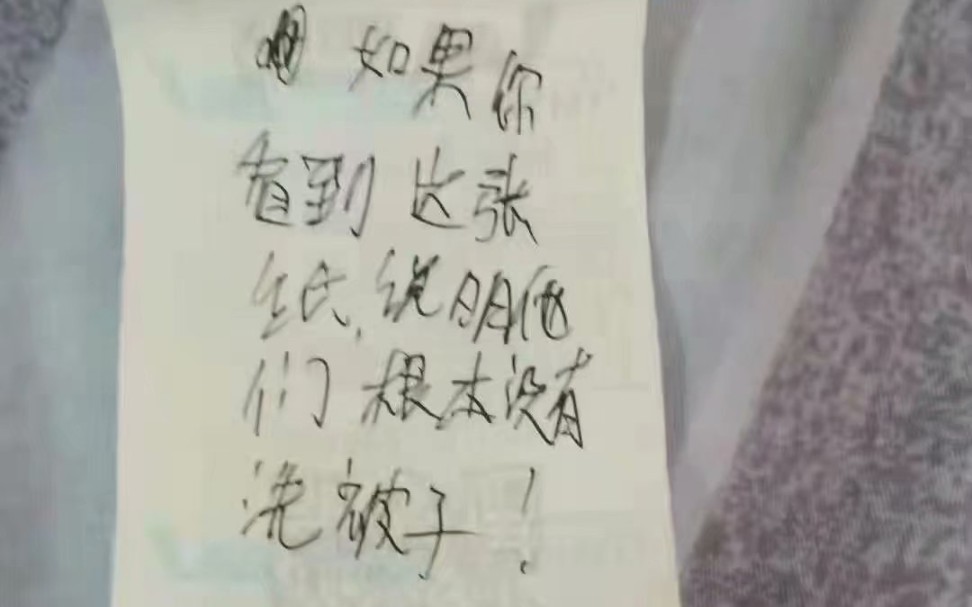 如果你
看到这张
纸,说明他
们根本没有
洗被子!